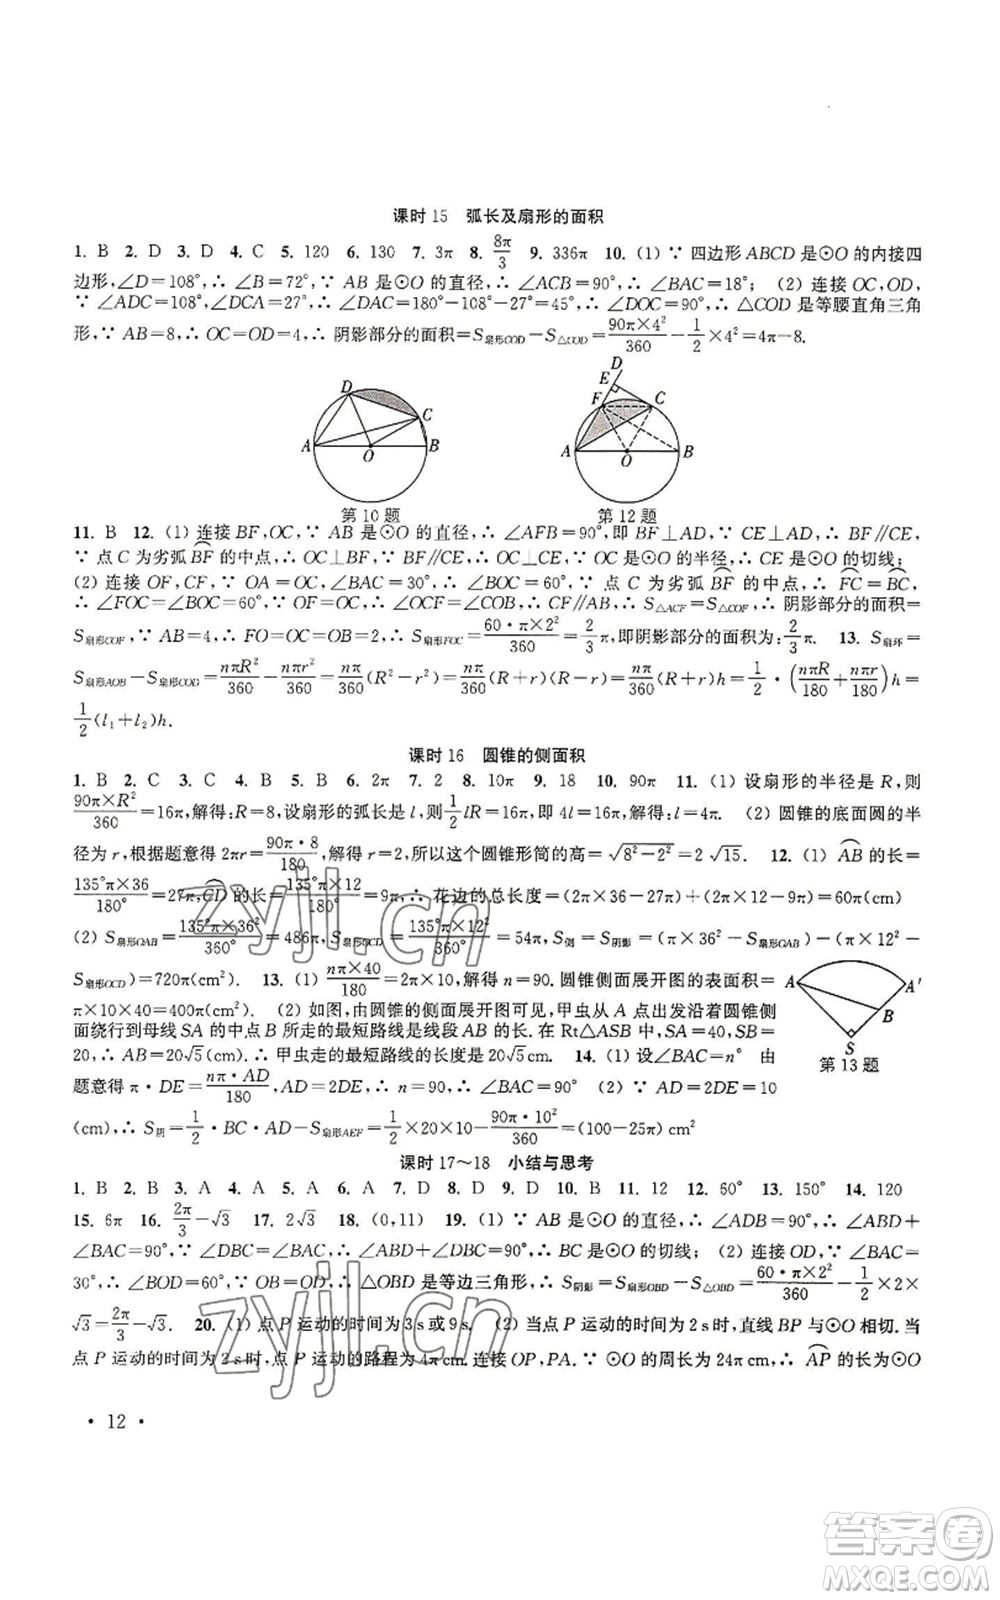 课时 15　弧长及扇形的面积
1. B　2. D　3. D　4. C　5. 120　6. 130　7. 3π　8. 8π/3　9. 336π　10. (1) ∵ 四边形 ABCD 是⊙O 的内接四
边形,∠D=108°,∴ ∠B=72°,∵ AB 是⊙O 的直径,∴ ∠ACB=90°,∴ ∠BAC=18°；(2) 连接 OC,OD,
∵ ∠ADC=108°,∠DCA=27°,∴ ∠DAC=180°−108°−27°=45°,∴ ∠DOC=90°,∴ △COD 是等腰直角三角
形,∵ AB=8,∴ OC=OD=4,∴ 阴影部分的面积=S扇形COD−S△COD=90π×4²/360−1/2×4²=4π−8.
D
C
A
O
B
第 10 题
D
E
F
C
A
O
B
第 12 题
11. B　12. (1) 连接 BF,OC,∵ AB 是⊙O 的直径,∴ ∠AFB=90°,即 BF⊥AD,∵ CE⊥AD,∴ BF∥CE,
∵ 点 C 为劣弧 BF 的中点,∴ OC⊥BF,∵ BF∥CE,∴ OC⊥CE,∵ OC 是⊙O 的半径,∴ CE 是⊙O 的切线；
(2) 连接 OF,CF,∵ OA=OC,∠BAC=30°,∴ ∠BOC=60°,∵ 点 C 为劣弧 BF 的中点,∴ FC=BC,
∴ ∠FOC=∠BOC=60°,∵ OF=OC,∴ ∠OCF=∠COB,∴ CF∥AB,∴ S△ACF=S△COF,∴ 阴影部分的面积=
S扇形COF,∵ AB=4,∴ FO=OC=OB=2,∴ S扇形FOC=60·π×2²/360=2/3π,即阴影部分的面积为:2/3π.　13. S扇环=
S扇形AOB−S扇形COD=nπR²/360−nπr²/360=nπ/360(R²−r²)=nπ/360(R+r)(R−r)=nπ/360(R+r)h=1/2·(nπR/180+nπr/180)h=
1/2(l₁+l₂)h.
课时 16　圆锥的侧面积
1. B　2. C　3. C　4. B　5. B　6. 2π　7. 2　8. 10π　9. 18　10. 90π　11. (1) 设扇形的半径是 R,则
90π×R²/360=16π,解得:R=8,设扇形的弧长是 l,则1/2lR=16π,即 4l=16π,解得:l=4π.　(2) 圆锥的底面圆的半
径为 r,根据题意得 2πr=90π·8/180,解得 r=2,所以这个圆锥形筒的高=√(8²−2²)=2√15.　12. (1) AB 的长=
135°π×36/180°=27π,CD 的长=135°π×12/180°=9π,∴ 花边的总长度=(2π×36−27π)+(2π×12−9π)=60π(cm)
(2) S扇形OAB=135°π×36²/360°=486π,S扇形OCD=135°π×12²/360°=54π,S侧=S阴影=(π×36²−S扇形OAB)−(π×12²−
S扇形OCD)=720π(cm²)　13. (1) nπ×40/180=2π×10,解得 n=90. 圆锥侧面展开图的表面积=
π×10²+π×10×40=400π(cm²)　(2) 如图,由圆锥的侧面展开图可见,甲虫从 A 点出发沿着圆锥侧
面绕行到母线 SA 的中点 B 所走的最短路线是线段 AB 的长. 在 Rt△ASB 中,SA=40,SB=
20,∴ AB=20√5.∴ 甲虫走的最短路线的长度是 20√5cm.　14. (1) 设∠BAC=n°　由
题意得 π·DE=nπ·AD/180,AD=2DE,∴ n=90,∴ ∠BAC=90°　(2) ∵ AD=2DE=10
(cm),∴ S阴=1/2·BC·AD−S扇形AEF=1/2×20×10−90π·10²/360=(100−25π) cm²
A
A′
B
S
第 13 题
课时 17～18　小结与思考
1. B　2. B　3. A　4. A　5. A　6. A　7. D　8. D　9. D　10. B　11. 12　12. 60°　13. 150°　14. 120
15. 6π　16. 2π/3−√3　17. 2√3　18. (0,11)　19. (1) ∵ AB 是⊙O 的直径,∴ ∠ADB=90°,∴ ∠ABD+
∠BAC=90°,∵ ∠DBC=∠BAC,∴ ∠ABD+∠DBC=90°,∴ BC 是⊙O 的切线；(2) 连接 OD,∵ ∠BAC=
30°,∴ ∠BOD=60°,∵ OB=OD,∴ △OBD 是等边三角形,∴ S阴影=S扇形OBD−S△OBD=60·π×2²/360−1/2×2×
√3=2π/3−√3.　20. (1) 点 P 运动的时间为 3 s 或 9 s.　(2) 当点 P 运动的时间为 2 s 时,直线 BP 与⊙O 相切. 当
点 P 运动的时间为 2 s 时,点 P 运动的路程为 4π cm. 连接 OP,PA. ∵ ⊙O 的周长为 24π cm,∴ AP 的长为⊙O
· 12 ·
zyjl.cn
zyjl.cn
答案圈
MXQE.COM